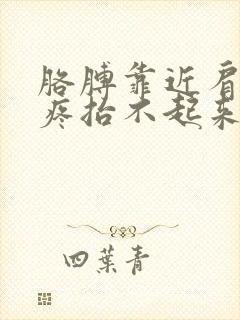 胳膊靠近肩
疼抬不起来
四葉青